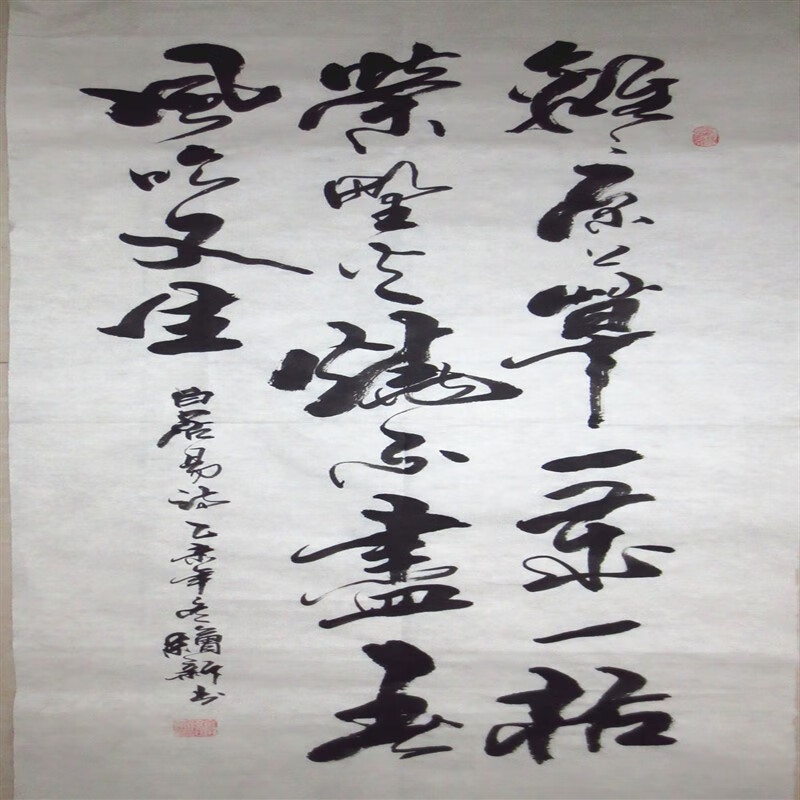 離々原上草一歲一枯
榮野火燒不盡春
風吹又生
白居易詩乙未年冬書